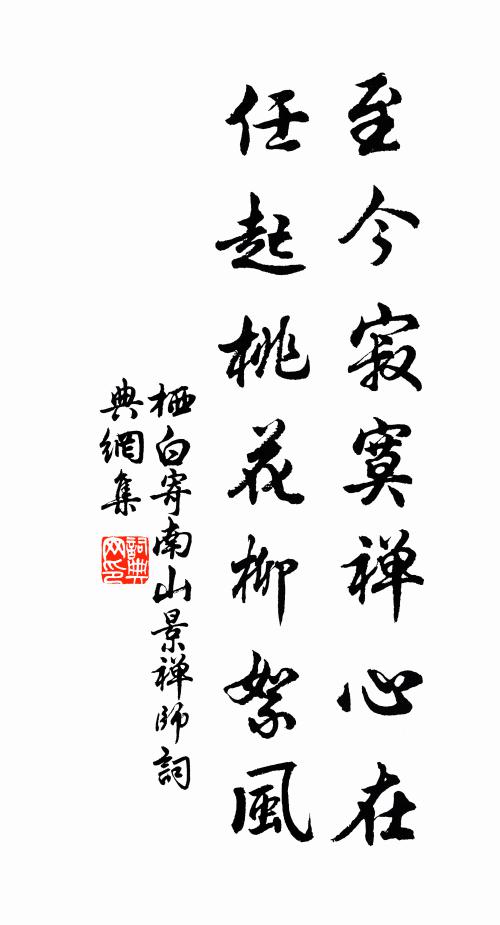 至今寂寞禅心在
任起桃花柳絮風
栖白寄南山景禅師詞
典網集
詞典网印